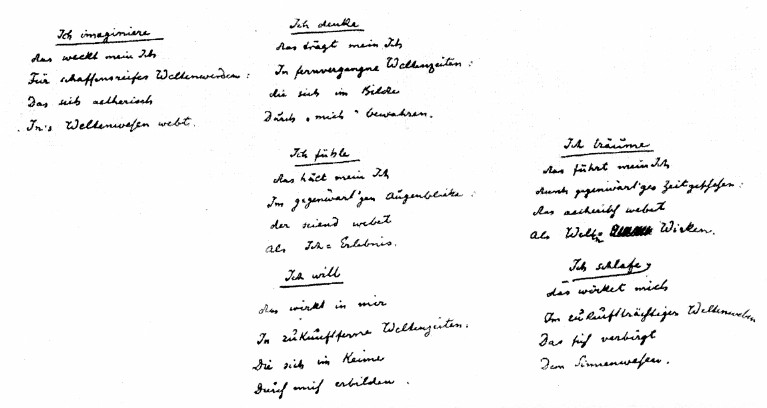 Ich imaginiere
das weckt mein Ich
Für schaffensreifes Weltenwerden:
Das sich aetherisch
In's Weltenwesen webt.
Ich denke
das trägt mein Ich
In fernvergangne Weltenzeiten:
die sich im Bilde
Durch „mich" bewahren.
Ich fühle
das hält mein Ich
Im gegenwärt'gen Augenblicke:
der seiend webet
Als Ich=Erlebnis.
Ich will
das wirkt in mir
In zukunftferne Weltenzeiten.
Die sich im Keime
Durch mich erbilden.
Ich träume
das führt mein Ich
durch gegenwärt'ges Zeitgeschehen:
das aetherisch webet
Als Welten= Wirken.
Ich schlafe,
das wirket mich
Im zukunftträchtigen Weltenweben
Das sich verbirgt
Dem Sinnenwesen.